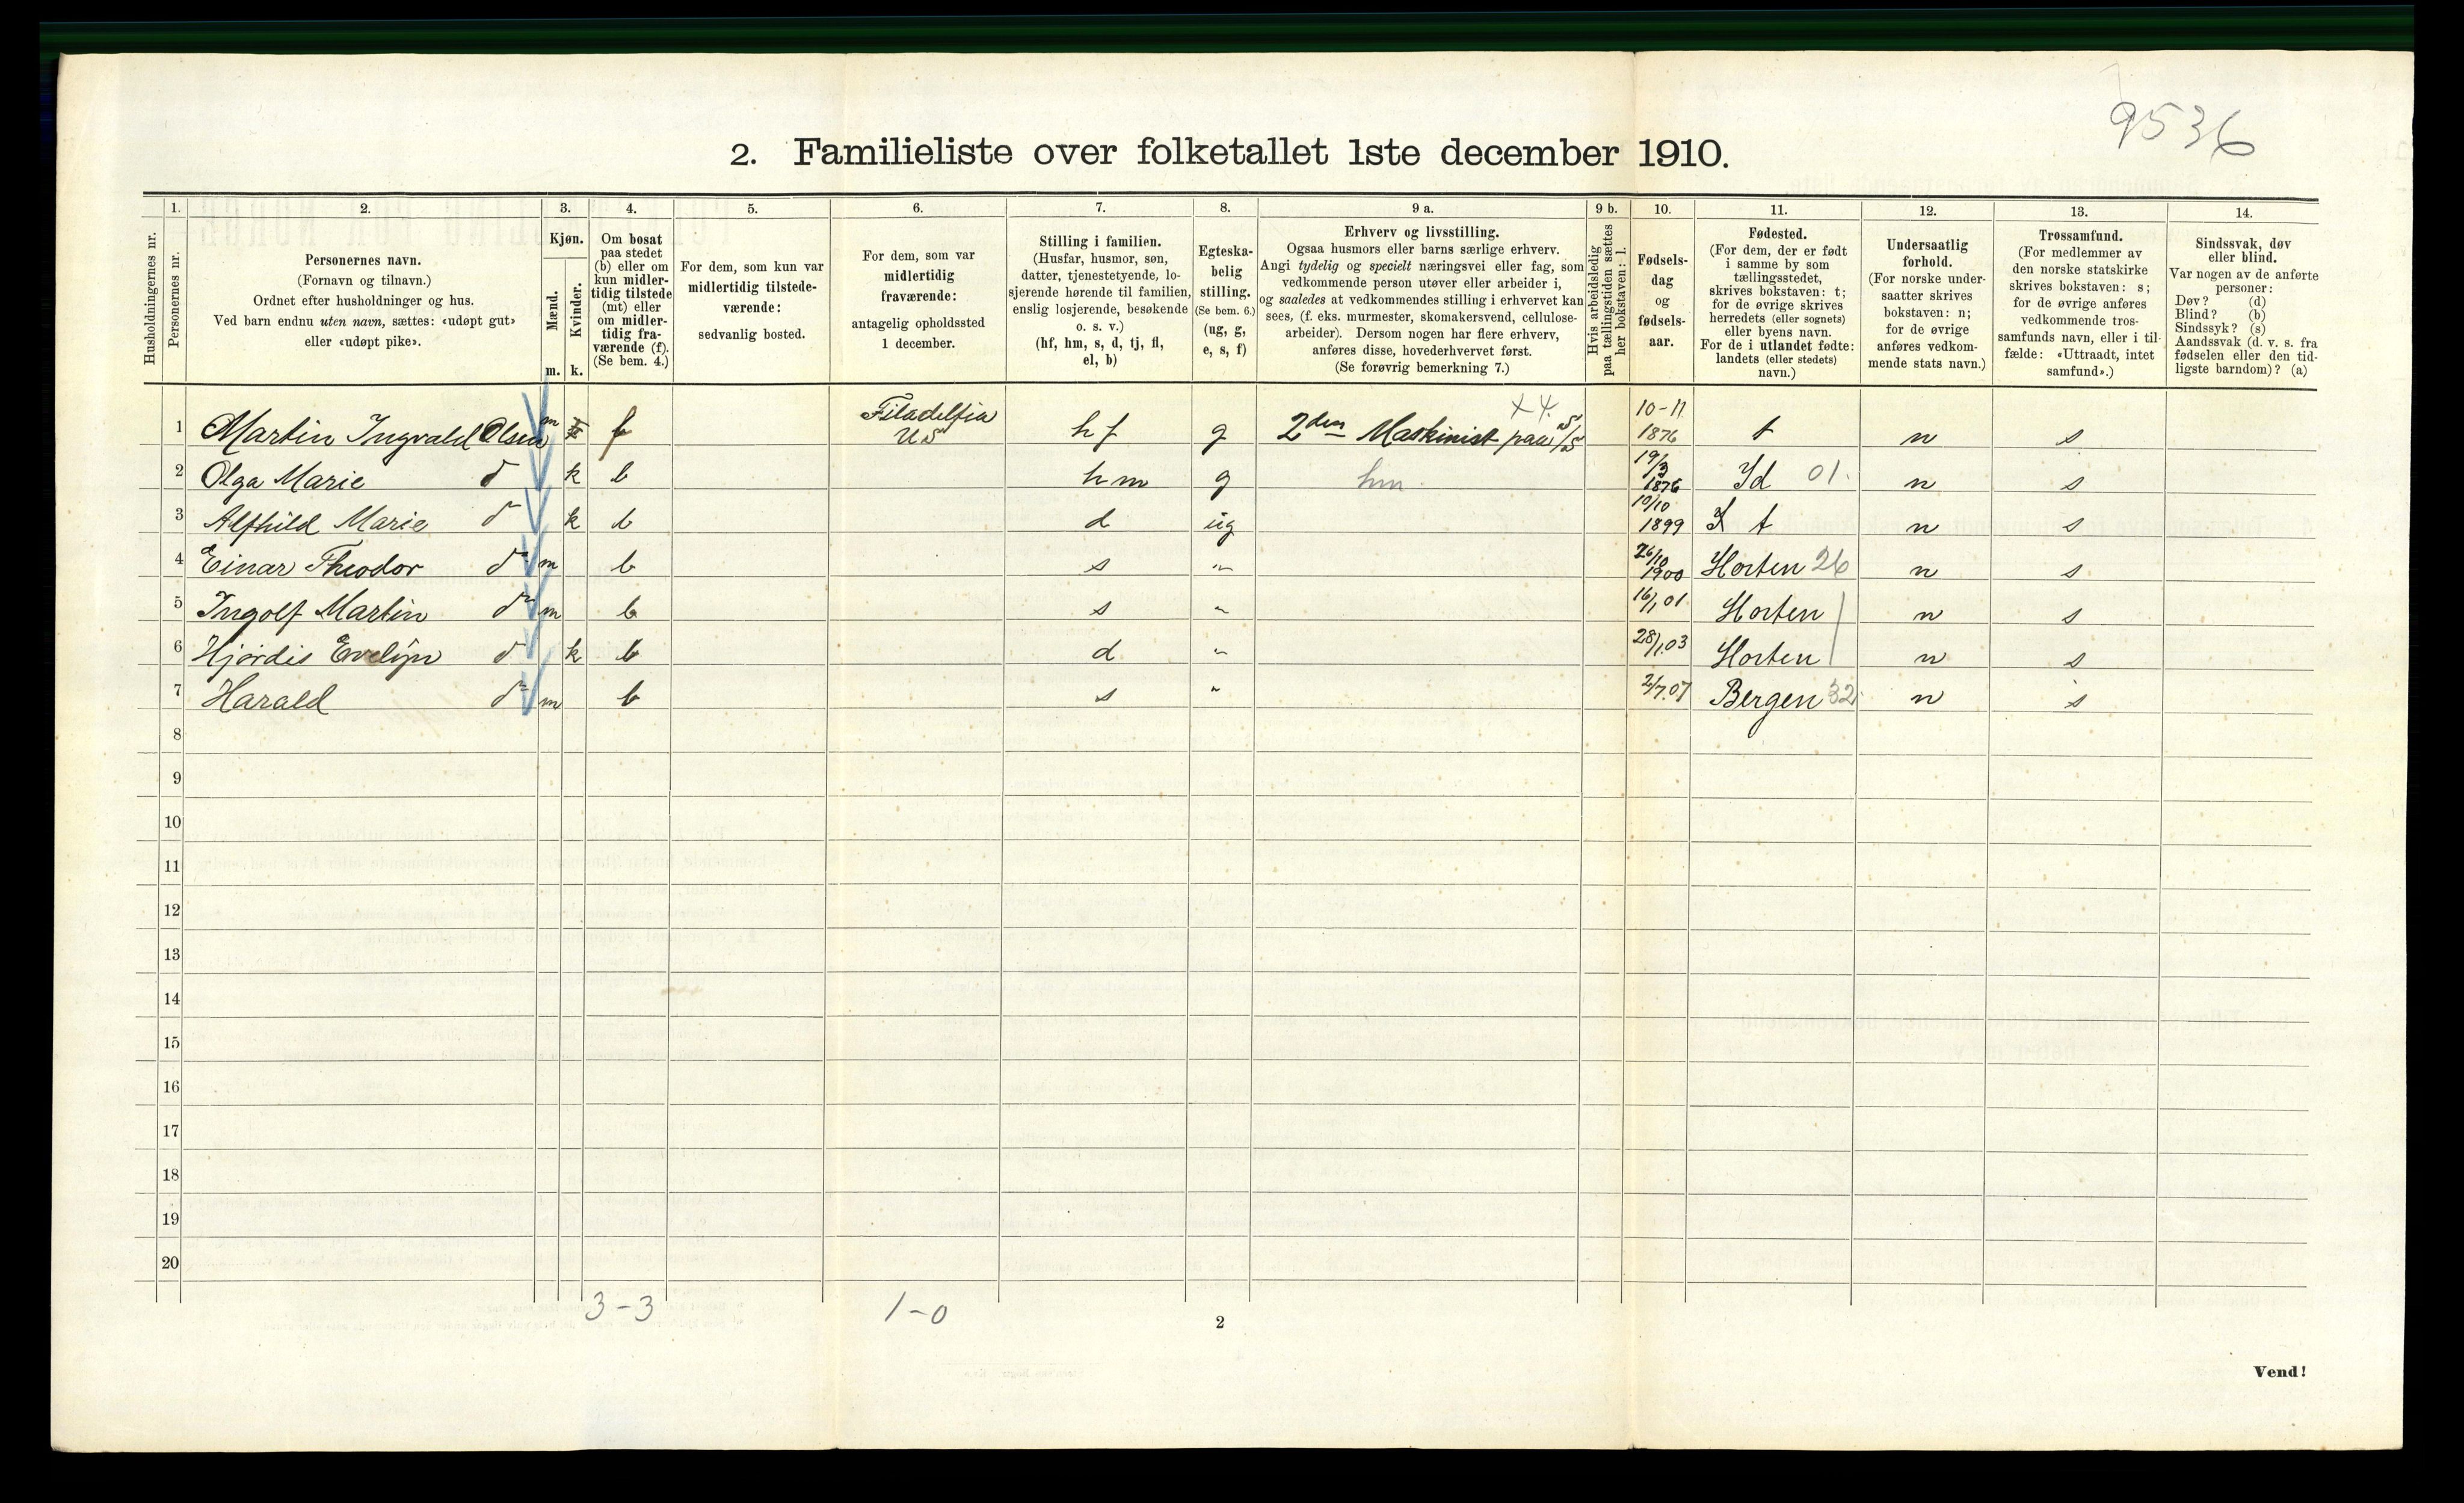 9536
2. Familieliste over folketallet 1ste december 1910.
1. 2. 3. 4. 5. 6. 7. 8. 9 a. 9 b. 10. 11. 12. 13. 14.
Husholdningernes nr.
Personernes nr.
Personernes navn.
(Fornavn og tilnavn.)
Ordnet efter husholdninger og hus.
Ved barn endnu uten navn, sættes: «udøpt gut»
eller «udøpt pike».
Kjøn.
Mænd.
Kvinder.
m. k.
Om bosat
paa stedet
(b) eller om
kun midler-
tidig tilstede
(mt) eller
om midler-
tidig fra-
værende (f).
(Se bem. 4.)
For dem, som kun var
midlertidig tilstede-
værende:
sedvanlig bosted.
For dem, som var
midlertidig
fraværende:
antagelig opholdssted
1 december.
Stilling i familien.
(Husfar, husmor, søn,
datter, tjenestetyende, lo-
sjerende hørende til familien,
enslig losjerende, besøkende
o. s. v.)
(hf, hm, s, d, tj, fl,
el, b)
Egteska-
belig
stilling.
(Se bem. 6.)
(ug, g,
e, s, f)
Erhverv og livsstilling.
Ogsaa husmors eller barns særlige erhverv.
Angi tydelig og specielt næringsvei eller fag, som
vedkommende person utøver eller arbeider i,
og saaledes at vedkommendes stilling i erhvervet kan
sees, (f. eks. murmester, skomakersvend, cellulose-
arbeider). Dersom nogen har flere erhverv,
anføres disse, hovederhvervet først.
(Se forøvrig bemerkning 7.)
Hvis arbeidsledig
paa tællingstiden sættes
her bokstaven: l.
Fødsels-
dag
og
fødsels-
aar.
Fødested.
(For dem, der er født
i samme by som
tællingsstedet,
skrives bokstaven: t;
for de øvrige skrives
herredets (eller sognets)
eller byens navn.
For de i utlandet fødte:
landets (eller stedets)
navn.)
Undersaatlig
forhold.
(For norske under-
saatter skrives
bokstaven: n;
for de øvrige
anføres vedkom-
mende stats navn.)
Trossamfund.
(For medlemmer av
den norske statskirke
skrives bokstaven: s;
for de øvrige anføres
vedkommende tros-
samfunds navn, eller i til-
fælde: «Uttraadt, intet
samfund».)
Sindssvak, døv
eller blind.
Var nogen av de anførte
personer:
Døv? (d)
Blind? (b)
Sindssyk? (s)
Aandssvak (d. v. s. fra
fødselen eller den tid-
ligste barndom)? (a)
1 Martin Ingvald Olsen m f Filadelfia US hf g 2den Maskinist paa S/S x 4. 10-11 1876 t n s
2 Olga Marie d k b hm g hm 19/3 1876 Id 01. n s
3 Alfhild Marie d k b d ug 10/10 1899 t n s
4 Einar Theodor do m b s " 26/10 1900 Horten 26 n s
5 Ingolf Martin do m b s " 16/1 01 Horten n s
6 Hjørdis Evelyn d k b d " 28/1 03 Horten n s
7 Harald do m b s " 2/7.07 Bergen 32 n s
8
9
10
11
12
13
14
15
16
17
18
19
20
3-3 1-0
2
Vend!